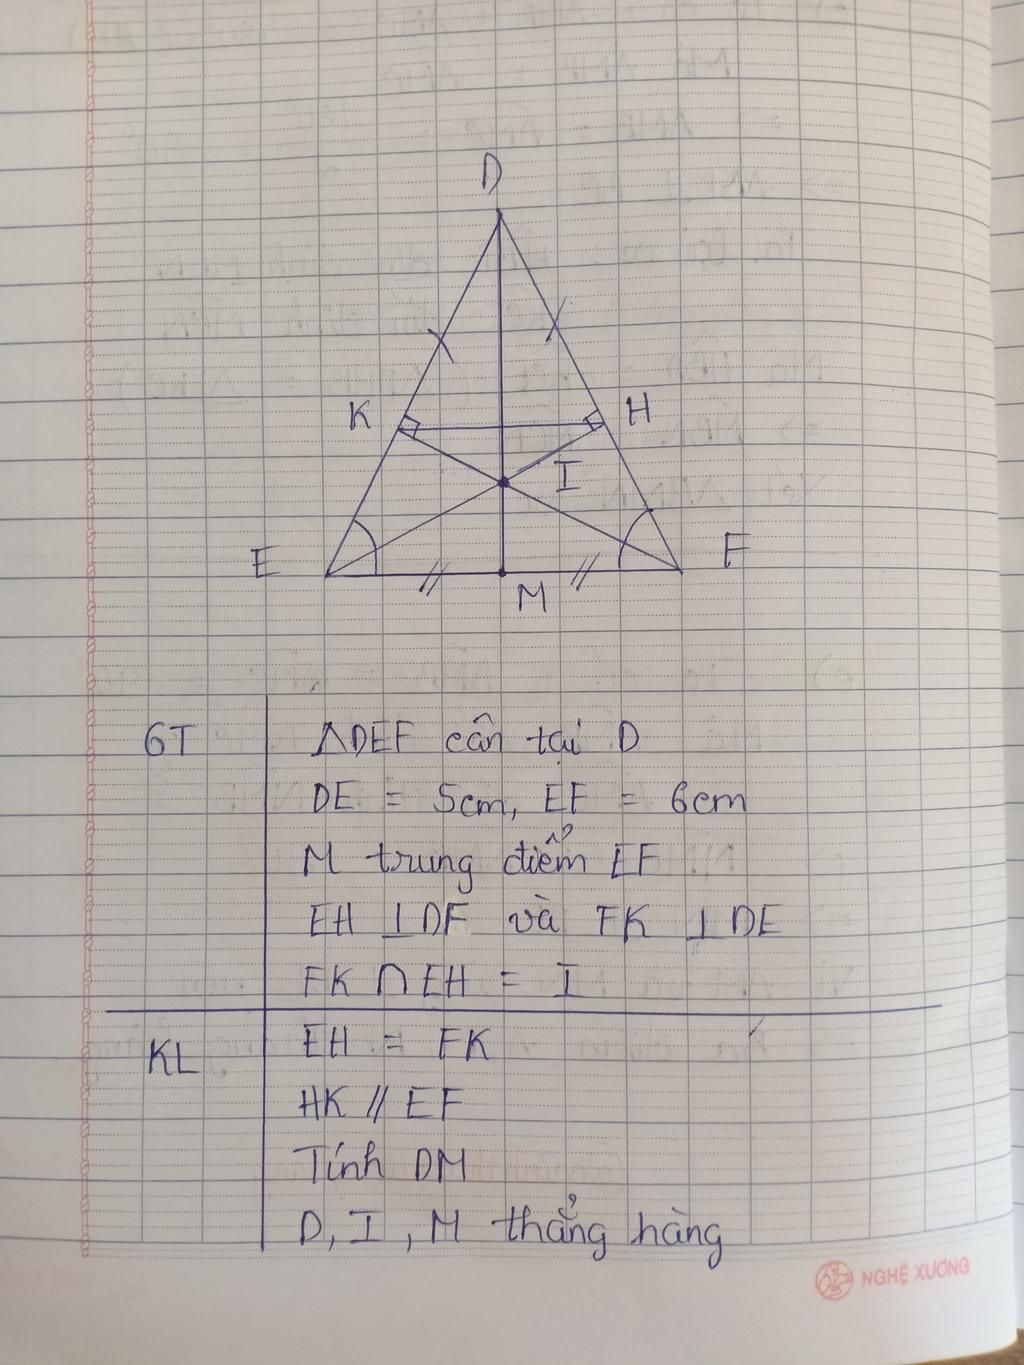 D
K
H
I
E
F
M
GT
ΔDEF cân tại D
DE = 5cm, EF = 6cm
M trung điểm EF
EH ⊥ DF và FK ⊥ DE
FK ∩ EH = I
KL
EH = FK
HK // EF
Tính DM
D, I, M thẳng hàng
NGHỆ XƯƠNG